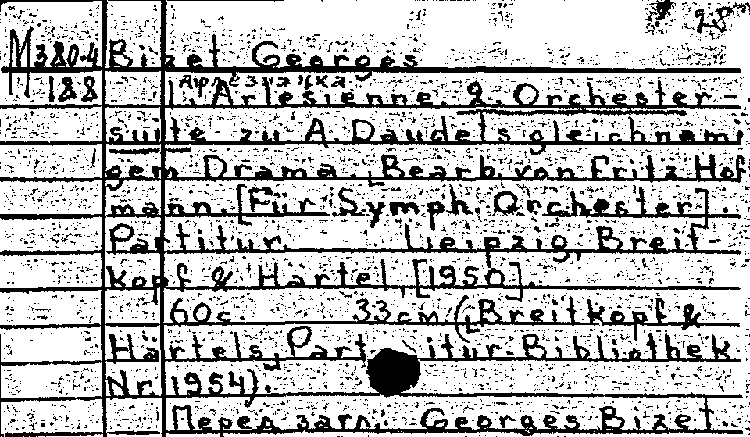 28
M 380-4 Bizet, Georges
Арлезианка
188 L'Arlesienne. 2. Orchester-
suite zu A. Daudets gleichnami
gem Drama. Bearb. von Fritz Hof
mann. [Für Symph. Orchester].
Partitur. Leipzig, Breit-
kopf & Härtel, [1950].
60 c. 33 cm. (Breitkopf &
Härtels Partitur-Bibliothek
Nr. 1954).
Перед загл.: Georges Bizet.